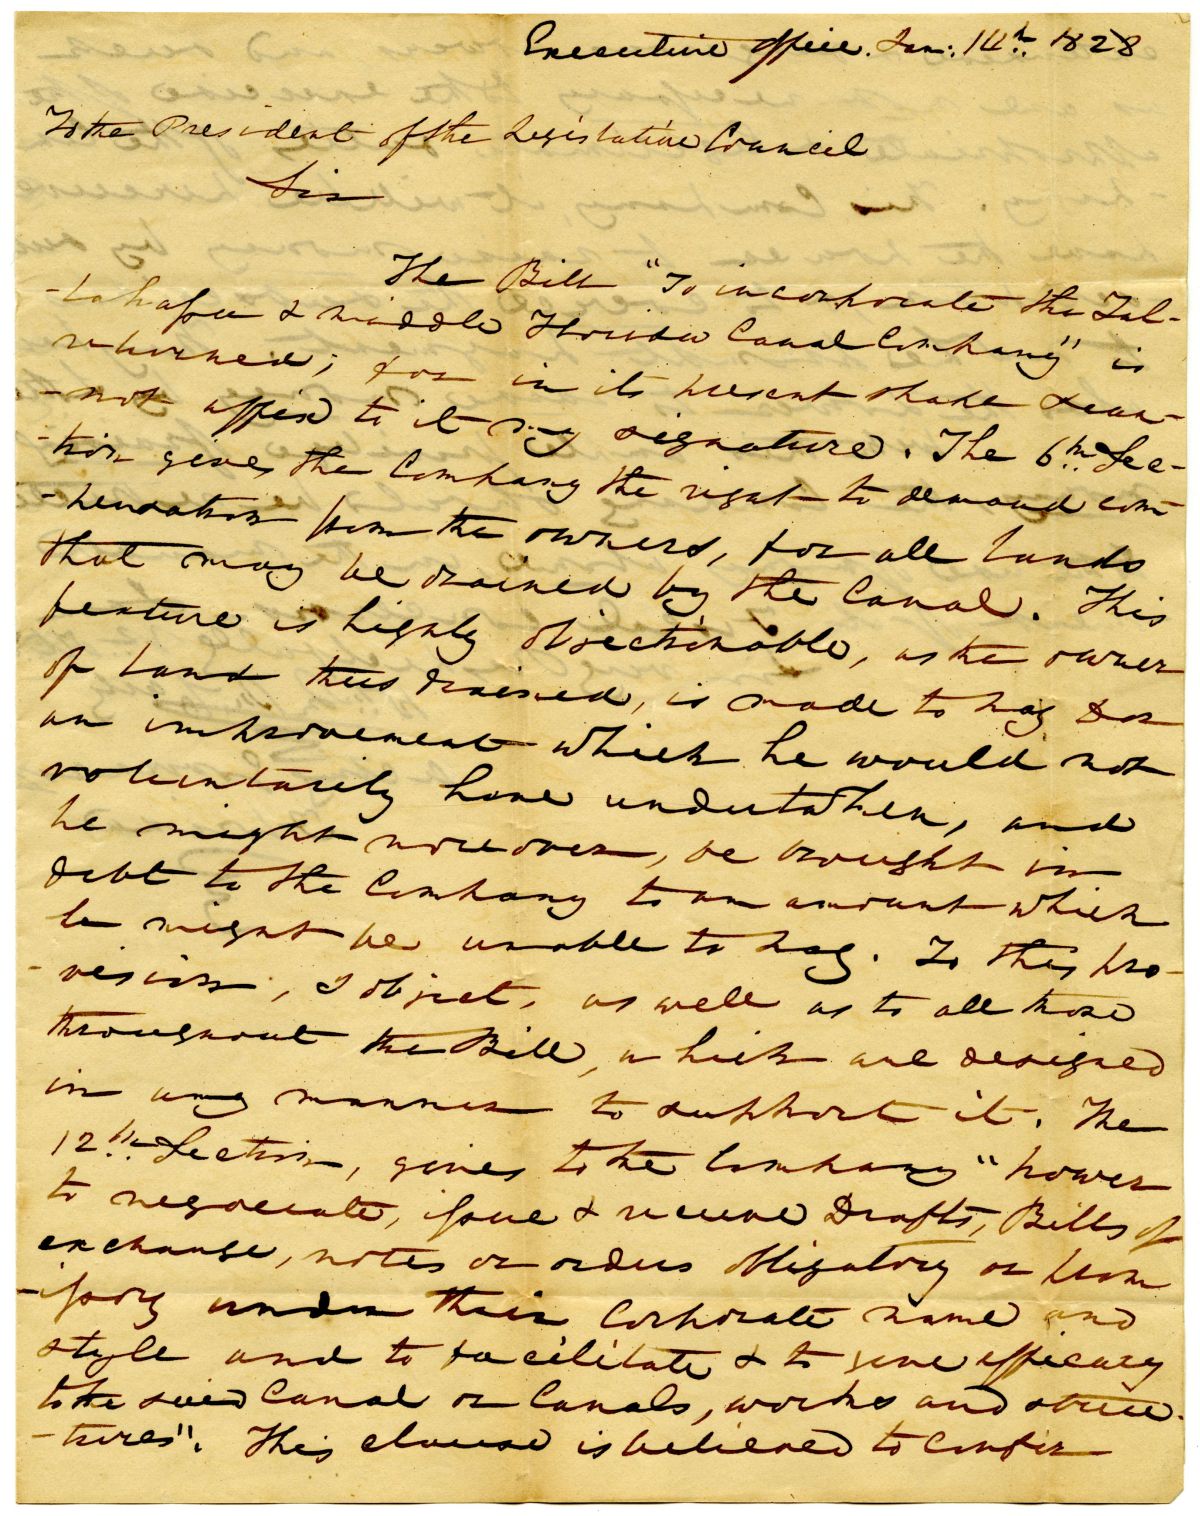 Executive Office. Jan: 14th. 1828
To the President of the Legislative Council
Sir
The Bill "To incorporate the Tal-
-lahassee & Middle Florida Canal Company" is
returned; for in its present shape I can-
-not affix to it my signature. The 6th. Sec-
-tion gives the Company the right to demand com-
-pensation from the owners, for all lands
that may be drained by the Canal. This
feature is highly objectionable, as the owner
of land thus drained, is made to pay for
an improvement which he would not
voluntarily have undertaken, and
he might moreover, be brought in
debt to the Company to an amount which
he might be unable to pay. To this pro-
-vision, I object, as well as to all those
throughout the Bill, which are designed
in any manner to support it. The
12th. Section, gives to the Company "power
to negociate, issue & receive Drafts, Bills of
exchange, notes or orders obligatory or prom
-issory under their corporate name and
style and to facilitate & to give efficacy
to the said Canal or Canals, works and struc-
-tures". This clause is believed to confer